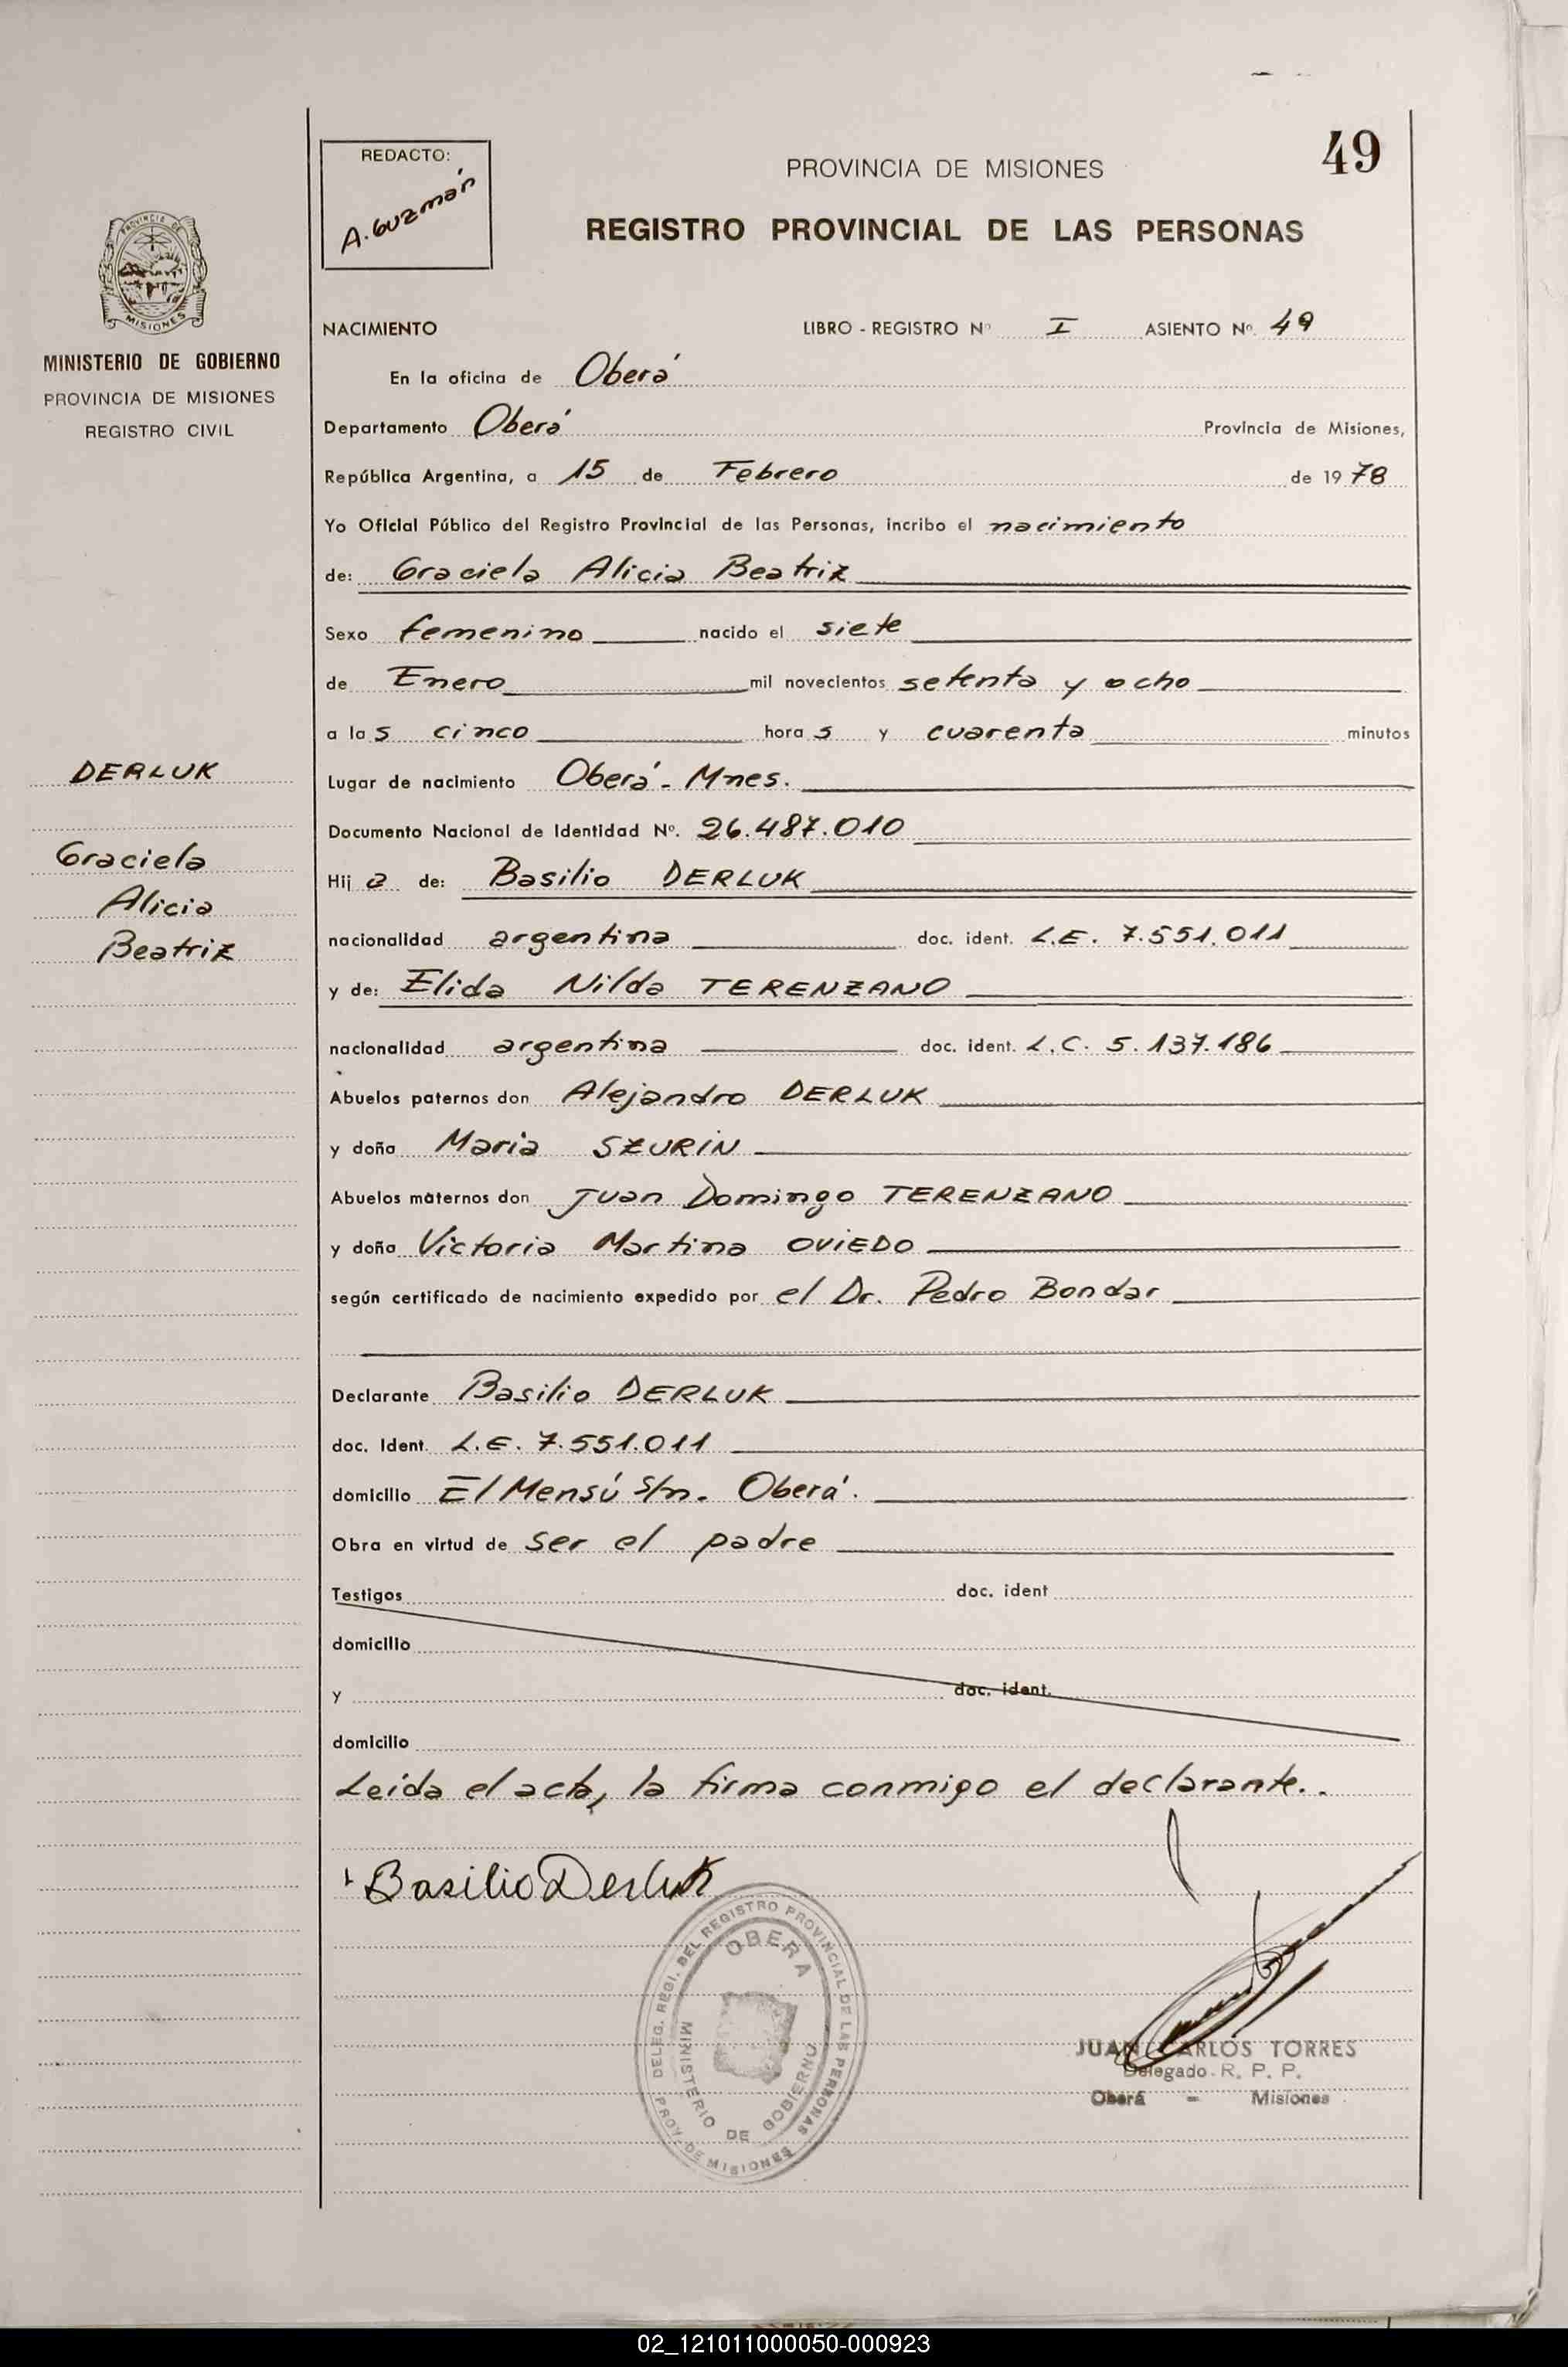 REDACTO:
A. Guzmán
PROVINCIA DE MISIONES
49
REGISTRO PROVINCIAL DE LAS PERSONAS
PROVINCIA DE
MISIONES
MINISTERIO DE GOBIERNO
PROVINCIA DE MISIONES
REGISTRO CIVIL
DERLUK
Graciela
Alicia
Beatriz
NACIMIENTO LIBRO - REGISTRO Nº I ASIENTO Nº 49
En la oficina de Oberá
Departamento Oberá Provincia de Misiones,
República Argentina, a 15 de Febrero de 1978
Yo Oficial Público del Registro Provincial de las Personas, incribo el nacimiento
de: Graciela Alicia Beatriz
Sexo femenino nacido el siete
de Enero mil novecientos setenta y ocho
a las cinco horas y cuarenta minutos
Lugar de nacimiento Oberá - Mnes.
Documento Nacional de Identidad Nº. 26.487.010
Hija de: Basilio DERLUK
nacionalidad argentina doc. ident. L.E. 7.551.011
y de: Elida Nilda TERENZANO
nacionalidad argentina doc. ident. L.C. 5.137.186
Abuelos paternos don Alejandro DERLUK
y doña Maria SZURIN
Abuelos maternos don Juan Domingo TERENZANO
y doña Victoria Martina OVIEDO
según certificado de nacimiento expedido por el Dr. Pedro Bondar
Declarante Basilio DERLUK
doc. Ident. L.E. 7.551.011
domicilio El Mensú s/n. Oberá.
Obra en virtud de ser el padre
Testigos doc. ident
domicilio
y doc. ident.
domicilio
Leída el acta, la firma conmigo el declarante..
Basilio Derluk
DELEG. REGI. DEL REGISTRO PROVINCIAL DE LAS PERSONAS
OBERA
MINISTERIO DE GOBIERNO
PROV. DE MISIONES
JUAN CARLOS TORRES
Delegado R. P. P.
Oberá - Misiones
02_121011000050-000923